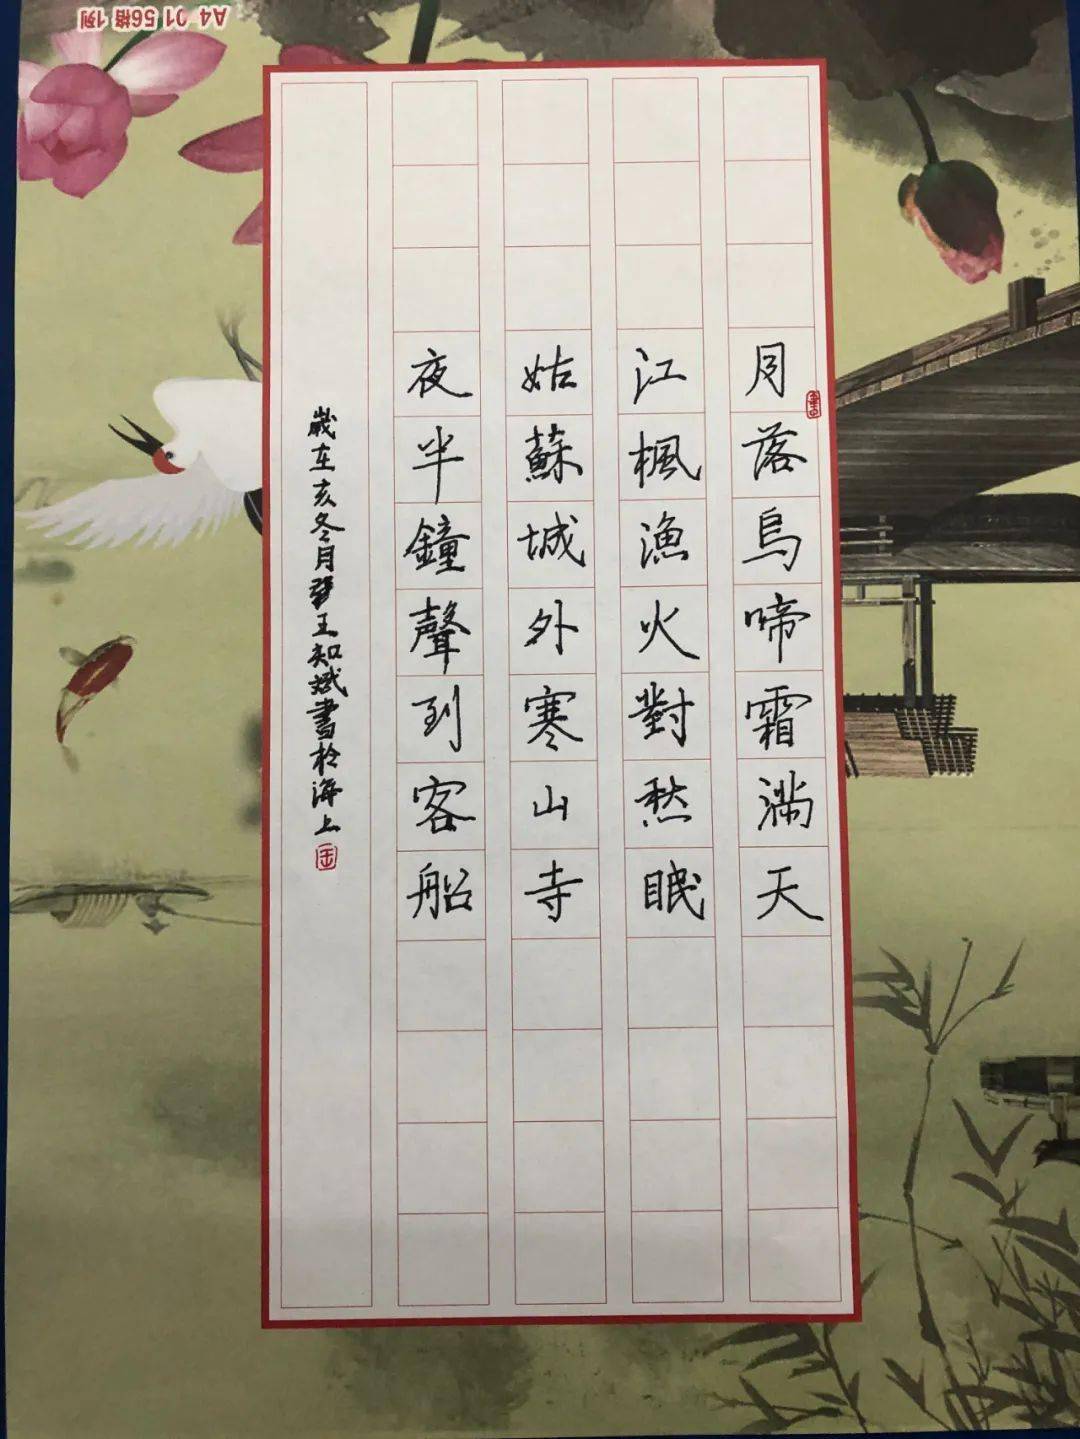 月落烏啼霜滿天
江楓漁火對愁眠
姑蘇城外寒山寺
夜半鐘聲到客船
歲在亥冬月 王知斌書於海上
A4 01 56格 1例